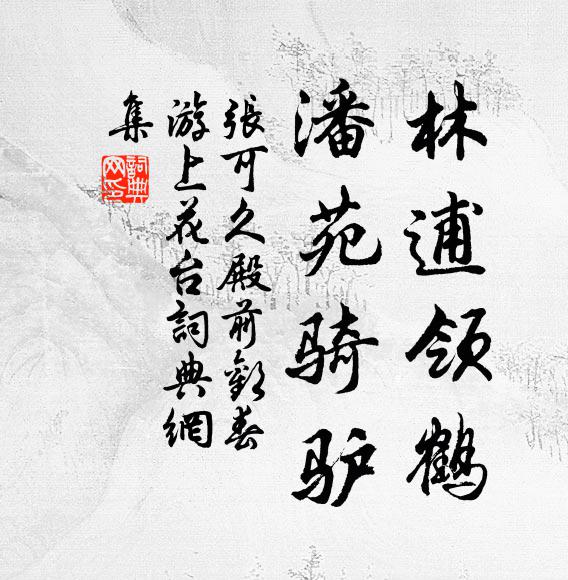 林逋领鹤
潘苑骑驴
張可久殿前歡春
游上花台詞典網
集
詞典
网印